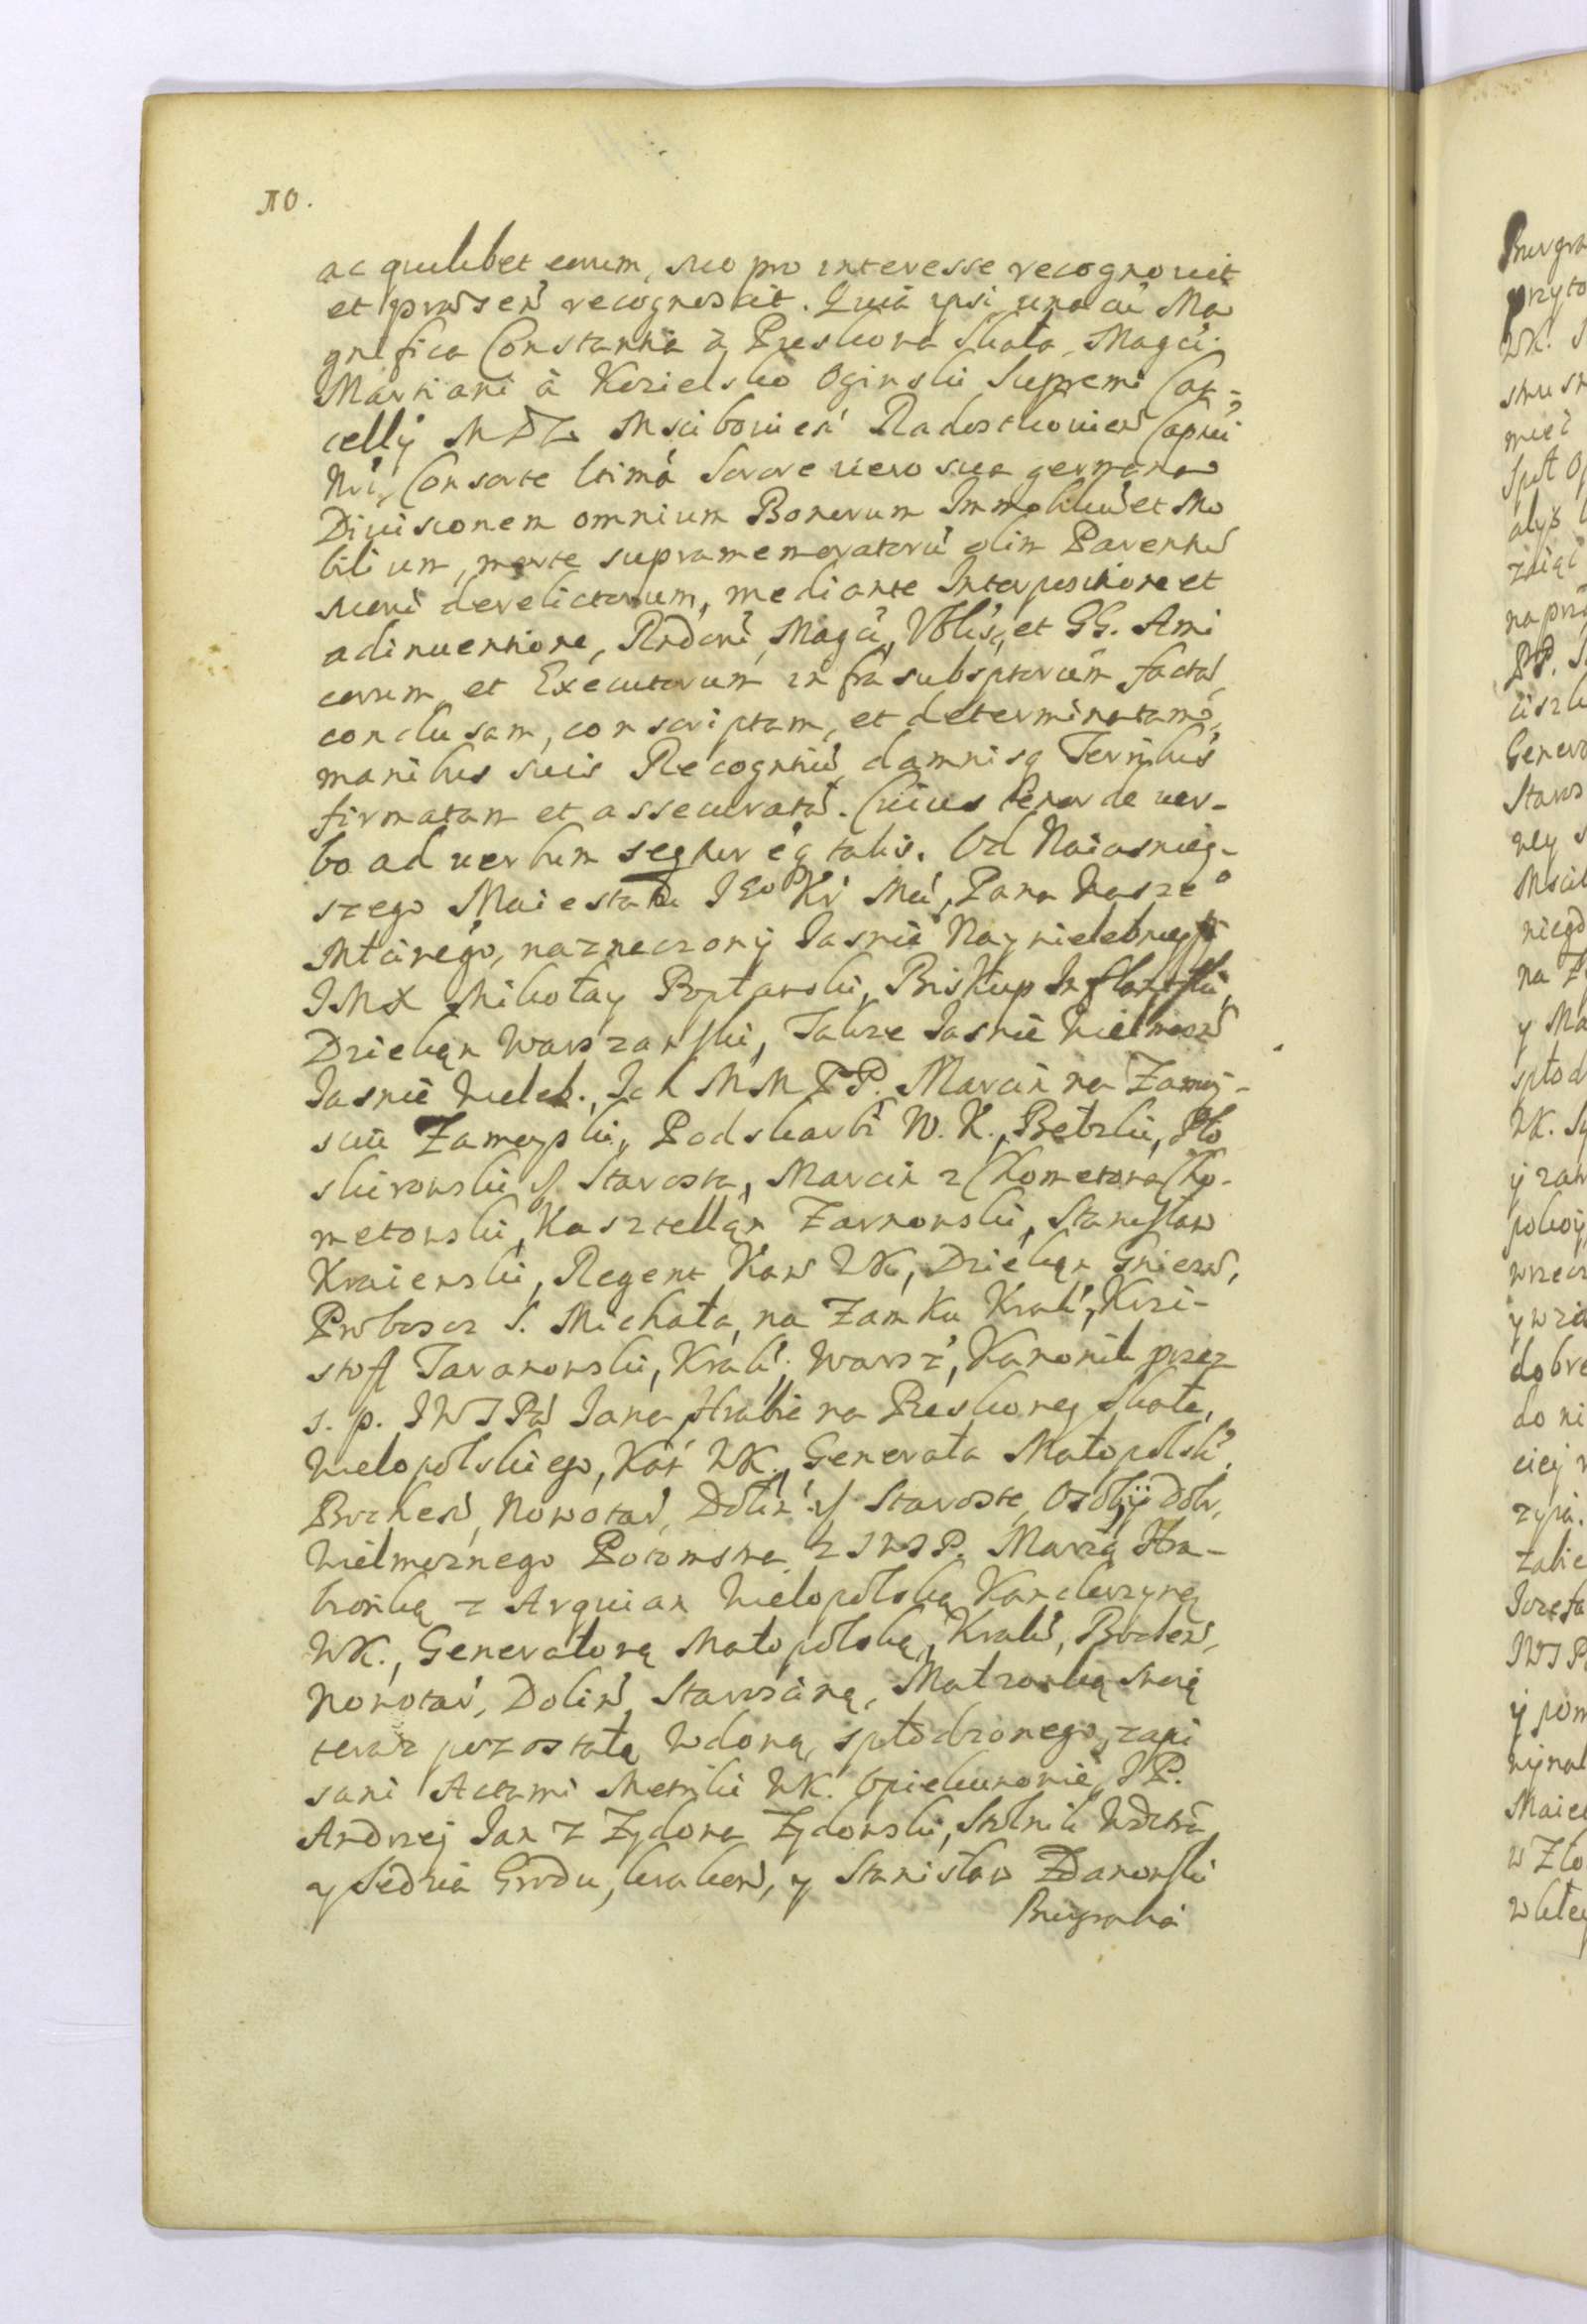 10.
ac quilibet eorum, suo pro interesse recognovit
et præsen̄ recognoscit. Quia ipsi una cū Ma
gnifica Constantia à Pieskowa Skała, Magci.
Marciani à Kozielsko Oginski Supremi Can-
cellÿ MDL Mscibowień Radoszkowień Capnei
Nri, Consorte ltima Sorore vero sua germana
Divisionem omnium Bonorum Immobiliū et Mo
bilium, morte supramemoratorū olim Parentū
suorū derelictorum, mediante Interpositione et
adinventione, Rndorū, Magcū, Vblis, et GG. Ami
corum et Executorum infra subsptorum factā,
conclusam, conscriptam, et determinatam,
manibus suis Recogntiū damnisq Terribus
firmatam et assecuratā. Cuius tenor de ver-
bo ad verbum seqtur éq talis. Od Naiasnieÿ-
szego Maiestatu JEo Kr Mci, Pana Nasze°
Mtciwego, naznaczony Jasnie Naywielebnieyszÿ
JMX Mikołay Popławski, Biskup Inflantski,
Dziekan Warszawski, Takze Jasnie Wielmozń
Jasnie Wieleb. Ich MM PP. Marcin na Zamoy-
sciu Zamoyski, Podskarbi W. K., Bełzki, Pło
skirowski &c Starosta, Marcin z Chometowa Cho-
metowski, Kasztellan Zarnowski, Stanisław
Kraiewski, Regent Kanc WK, Dziekan Gniezń,
Proboscz S. Michała, na Zamku Krak, Krzi-
stoff Taranowski, Krak. Warsz, Kanonik przez
s. p. JWJPa Jana Hrabie na Pieskowey Skale,
Wielopolskiego, Kan WK., Generała Małopolsk,
Bocheń, Nowotar, Doliń &c Staroste, Osoby Dobr,
Wielmoznego Potomstwa z JWJP. Marią Hra-
bionką z Arquian Wielopolską Kanclerzyną
WK., Generałową Małopolską, Krakw, Bocheń,
Nowotar, Doliń, Starościną, Małzonką Swoią
teraz pozostałą Wdową, spłodzonego, zapi
sani Actami Metriki WK. Opiekunowie, JP.
Andrzej Jan z Zydowa Zydowski, Stolnik Wdztwa
y Sędzia Grodu, krakow, y Stanisław Zdanowski
Burgrabia